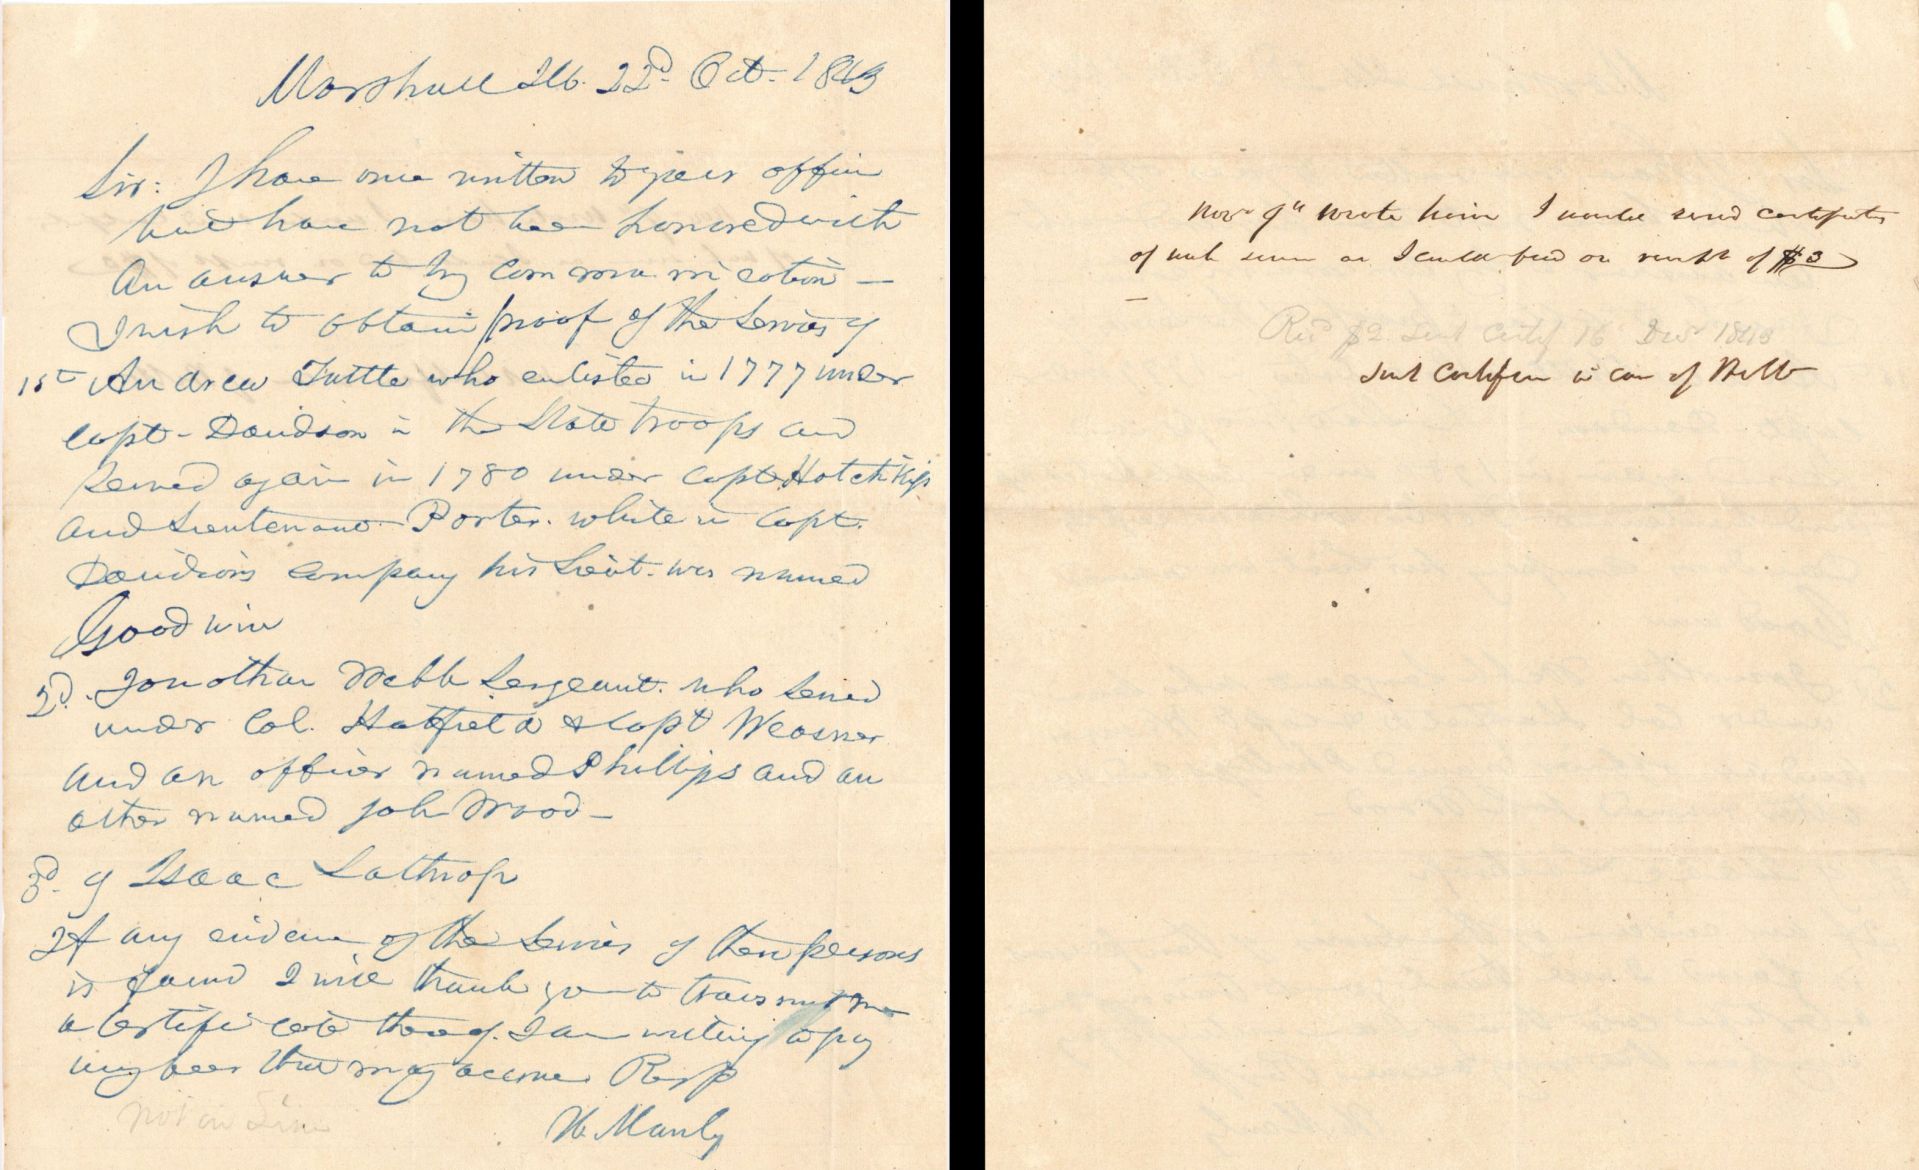 Marshall Ills. 22d Oct. 1843
Sir: I have once written to your office
but have not been honored with
an answer to my communication —
I wish to obtain proof of the services of
1st Andrew Tuttle who enlisted in 1777 under
Capt. Davidson in the State troops and
served again in 1780 under Capt Hotchkiss
and Lieutenant Porter. while in Capt.
Davidson's company his Lieut. was named
Goodwin
2d. Jonathan Webb Sergeant. who served
under Col. Hatfield & Capt Weasner
and an officer named Phillips and an
other named John Wood —
3d. of Isaac Lathrop
If any evidence of the services of these persons
is found I will thank you to transmit me
a certificate thereof. I am willing to pay
any fees that may accrue Resp
W. Manly
not on
Novr 9th wrote him I would send certificates
of such service as I could find on receipt of $3
Recd $2. Sent Certif 16 Decr 1843
Sent Certificate in case of Webb